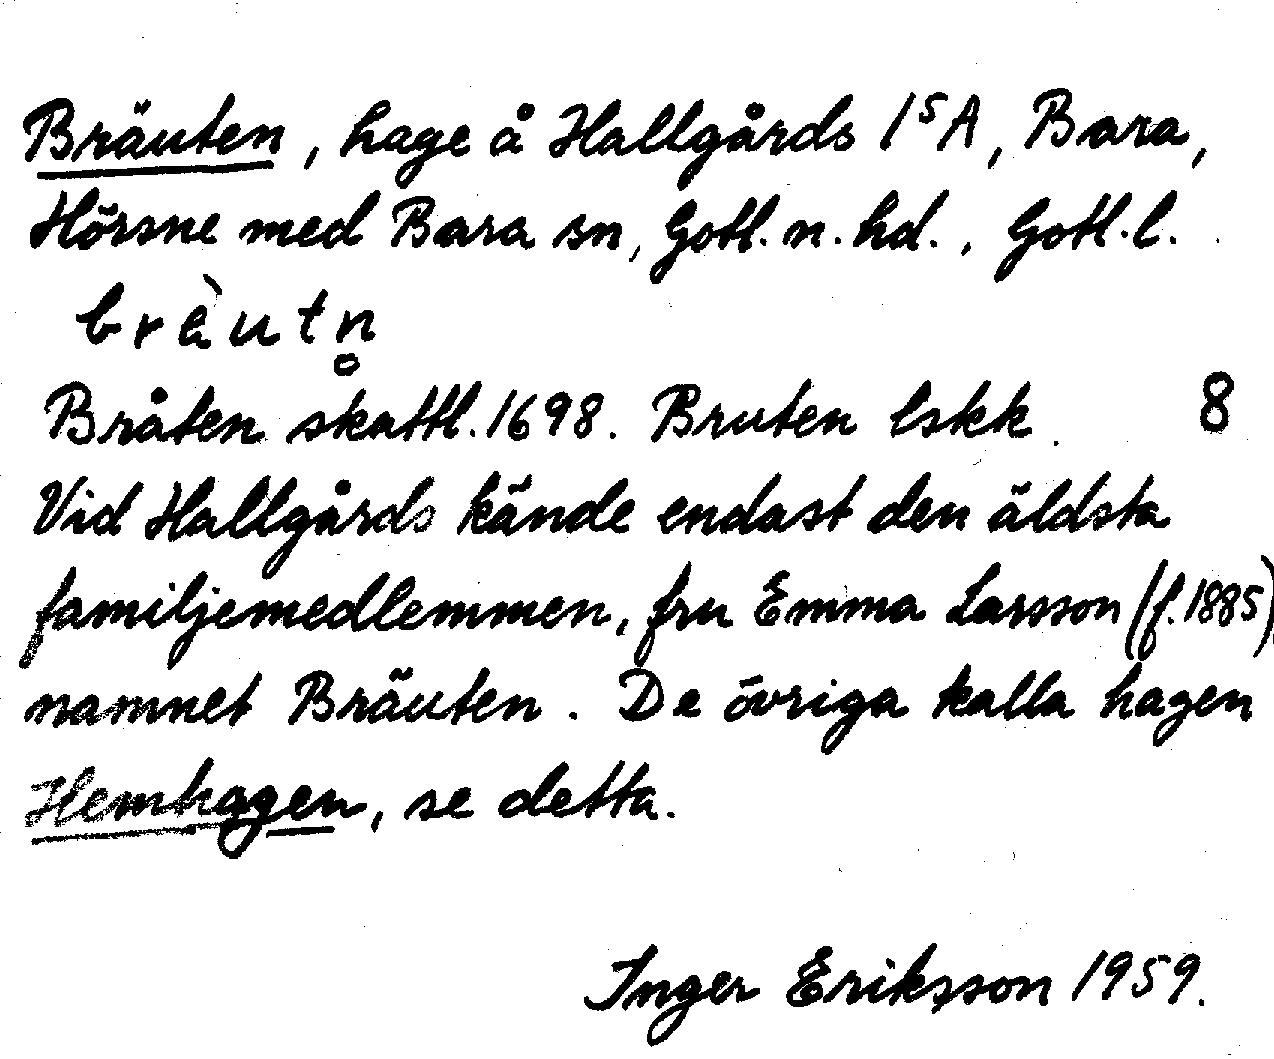 Bräuten, hage å Hallgårds 1ˢA, Bara,
Hörsne med Bara sn, Gotl. n. hd., Gotl. l.
brä̀utn̥
Bråten skattl. 1698. Bruten lskk. 8
Vid Hallgårds kände endast den äldsta
familjemedlemmen, fru Emma Larsson (f. 1885)
namnet Bräuten. De övriga kalla hagen
Hemhagen, se detta.
Inger Eriksson 1959.